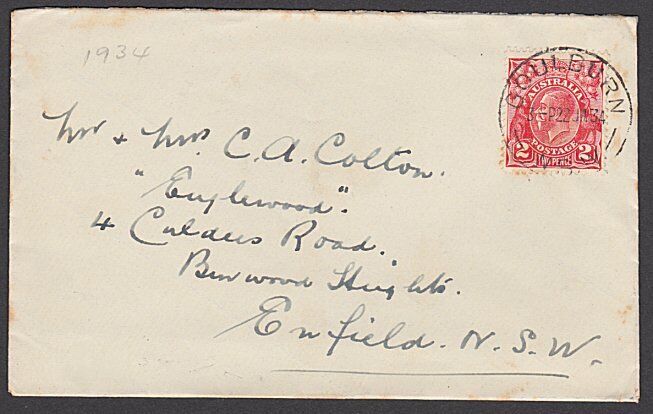 1934
GOULBURN
AUSTRALIA
POSTAGE
2 TWO PENCE 2
11
Mr + Mrs C. A. Colton.
"Englewood".
4 Road.
Burwood Heights.
Enfield. N. S. W.